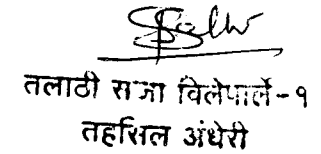 तलाठी सजा विलेपार्ले-१
तहसिल अंधेरी